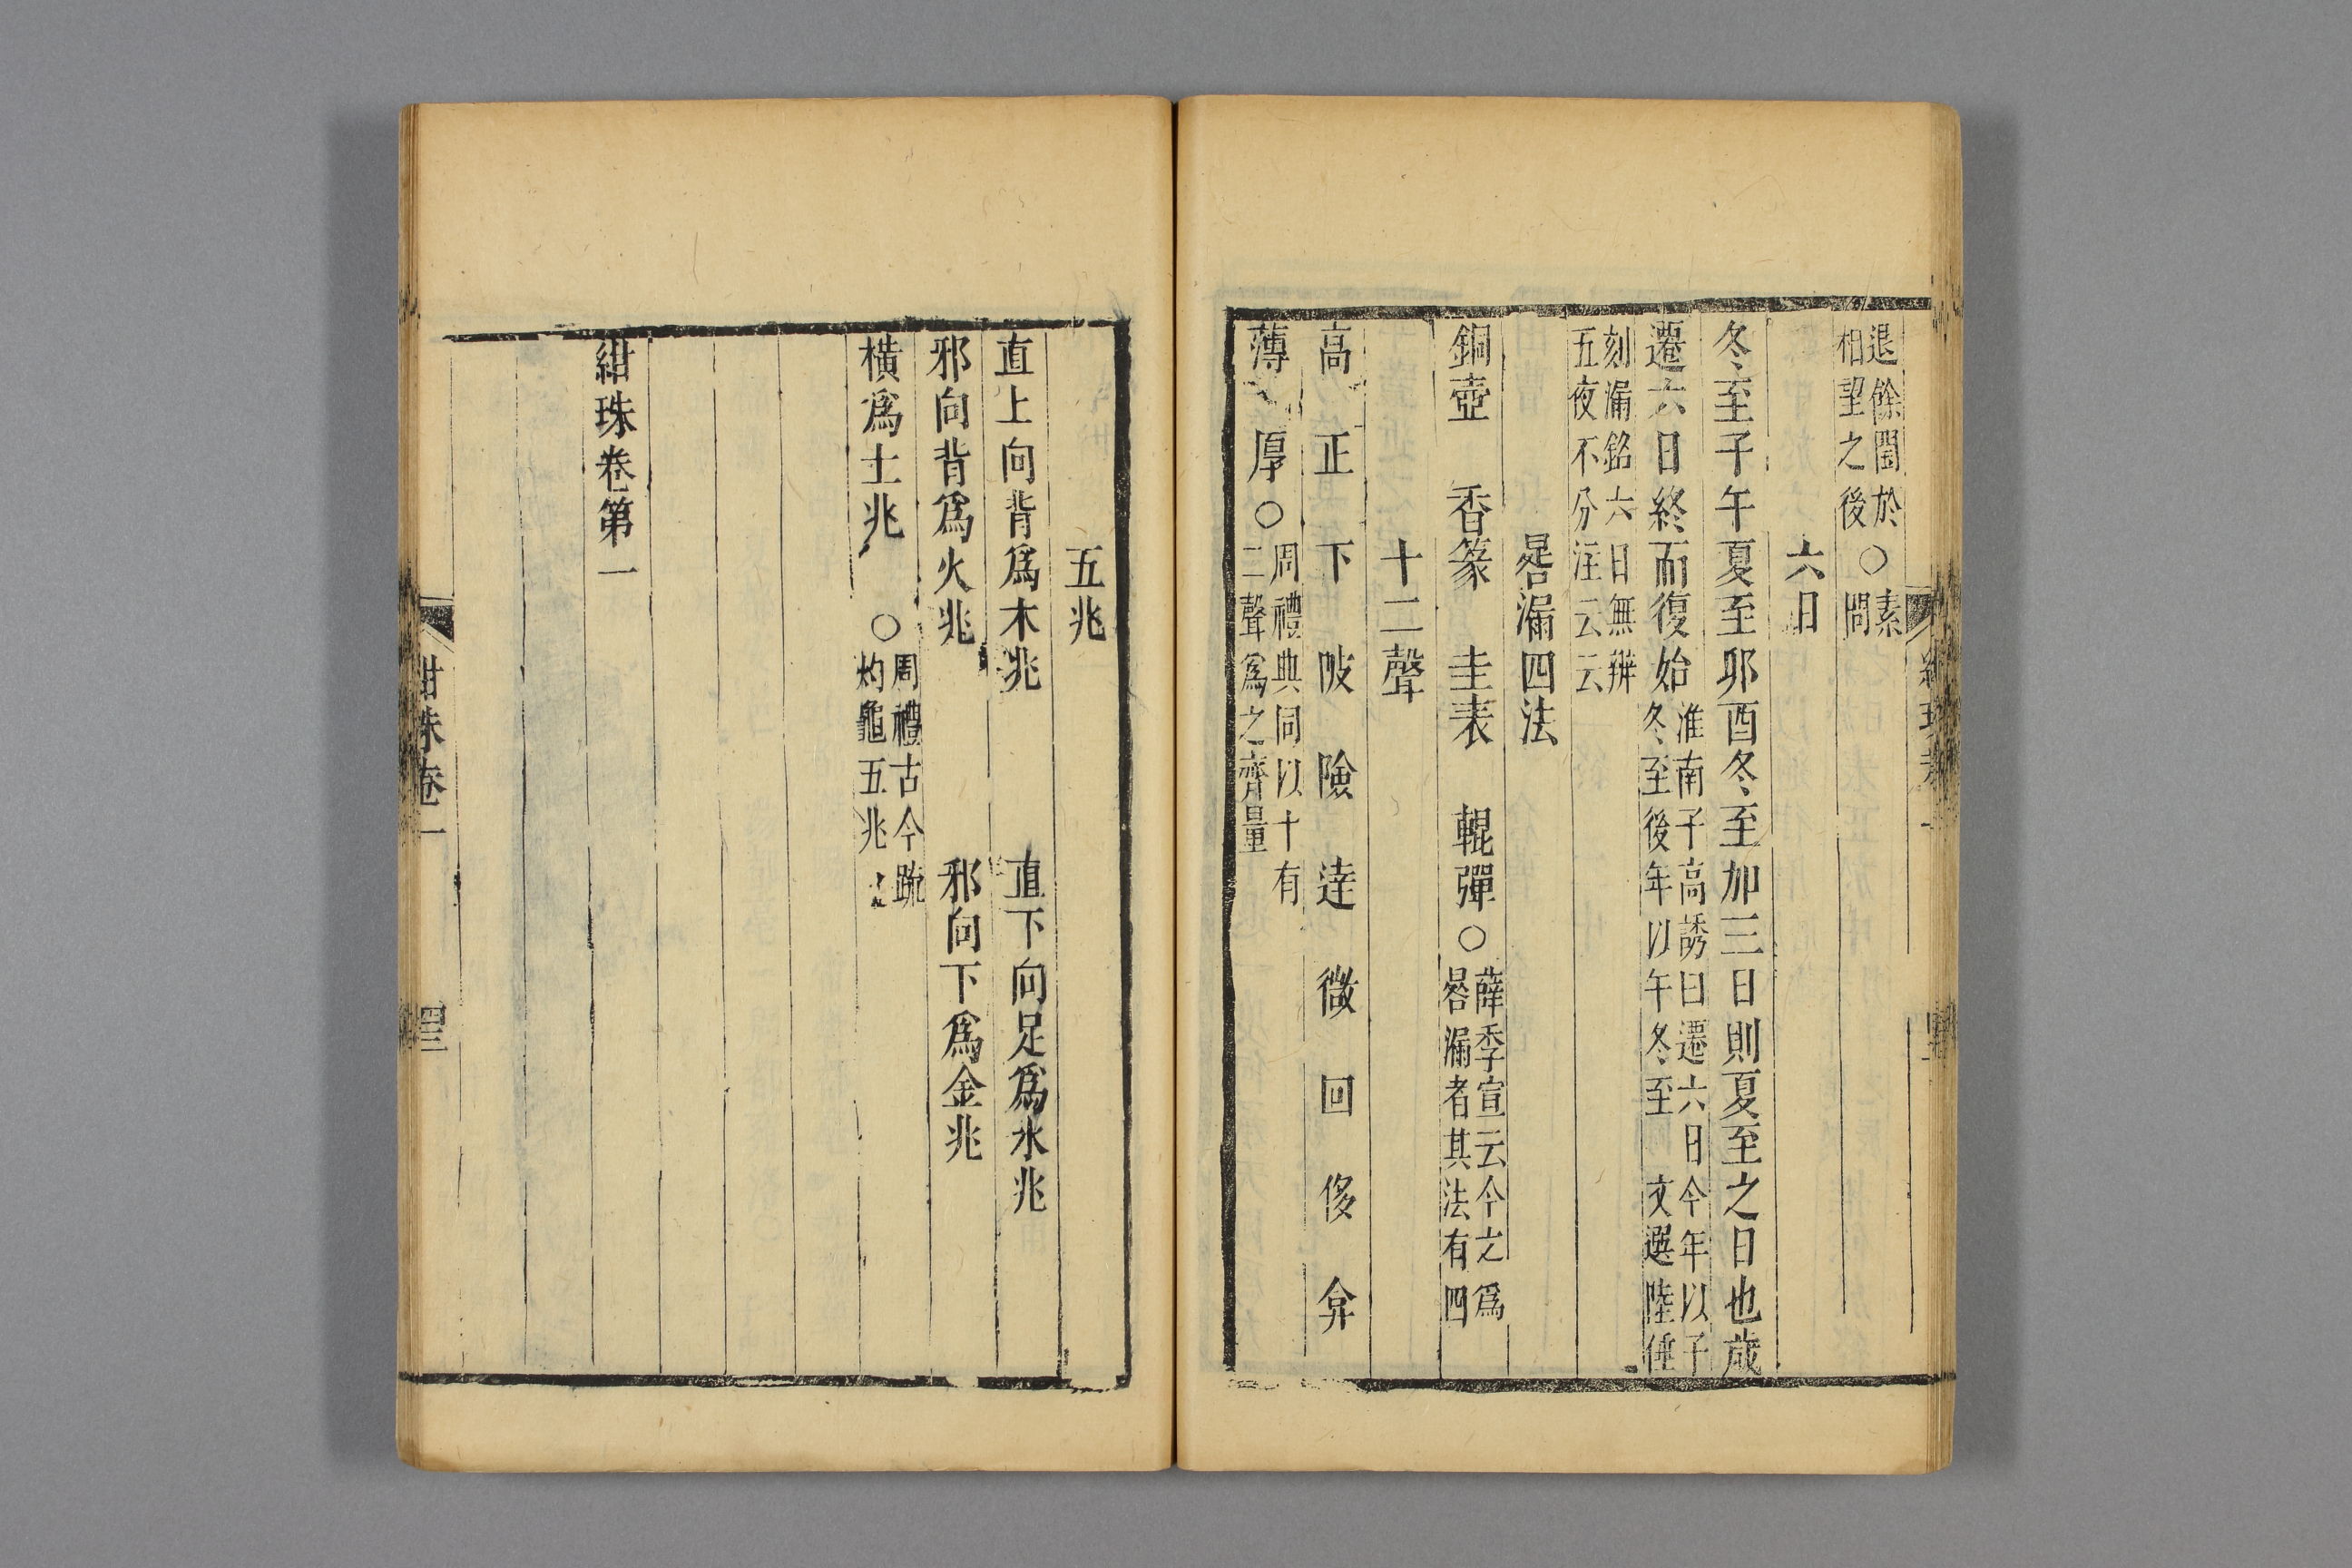 退餘閏於
相望之後
○素
問
六日
冬至子午夏至卯酉冬至加三日則夏至之日也歲
遷六日終而復始
淮南子高誘曰遷六日今年以子
冬至後年以午冬至 文選陸倕
刻漏銘六日無辨
五夜不分注云云
晷漏四法
銅壺 香篆 圭表 輥彈○
薛季宣云今之爲
晷漏者其法有四
十二聲
高 正 下 陂 險 達 微 回 侈 弇
薄 厚○
周禮典同以十有
二聲爲之齊量
五兆
直上向背爲木兆 直下向足爲水兆
邪向背爲火兆 邪向下爲金兆
橫爲土兆 ○
周禮占今䟽
灼龜五兆
紺珠卷第一
紺珠卷一